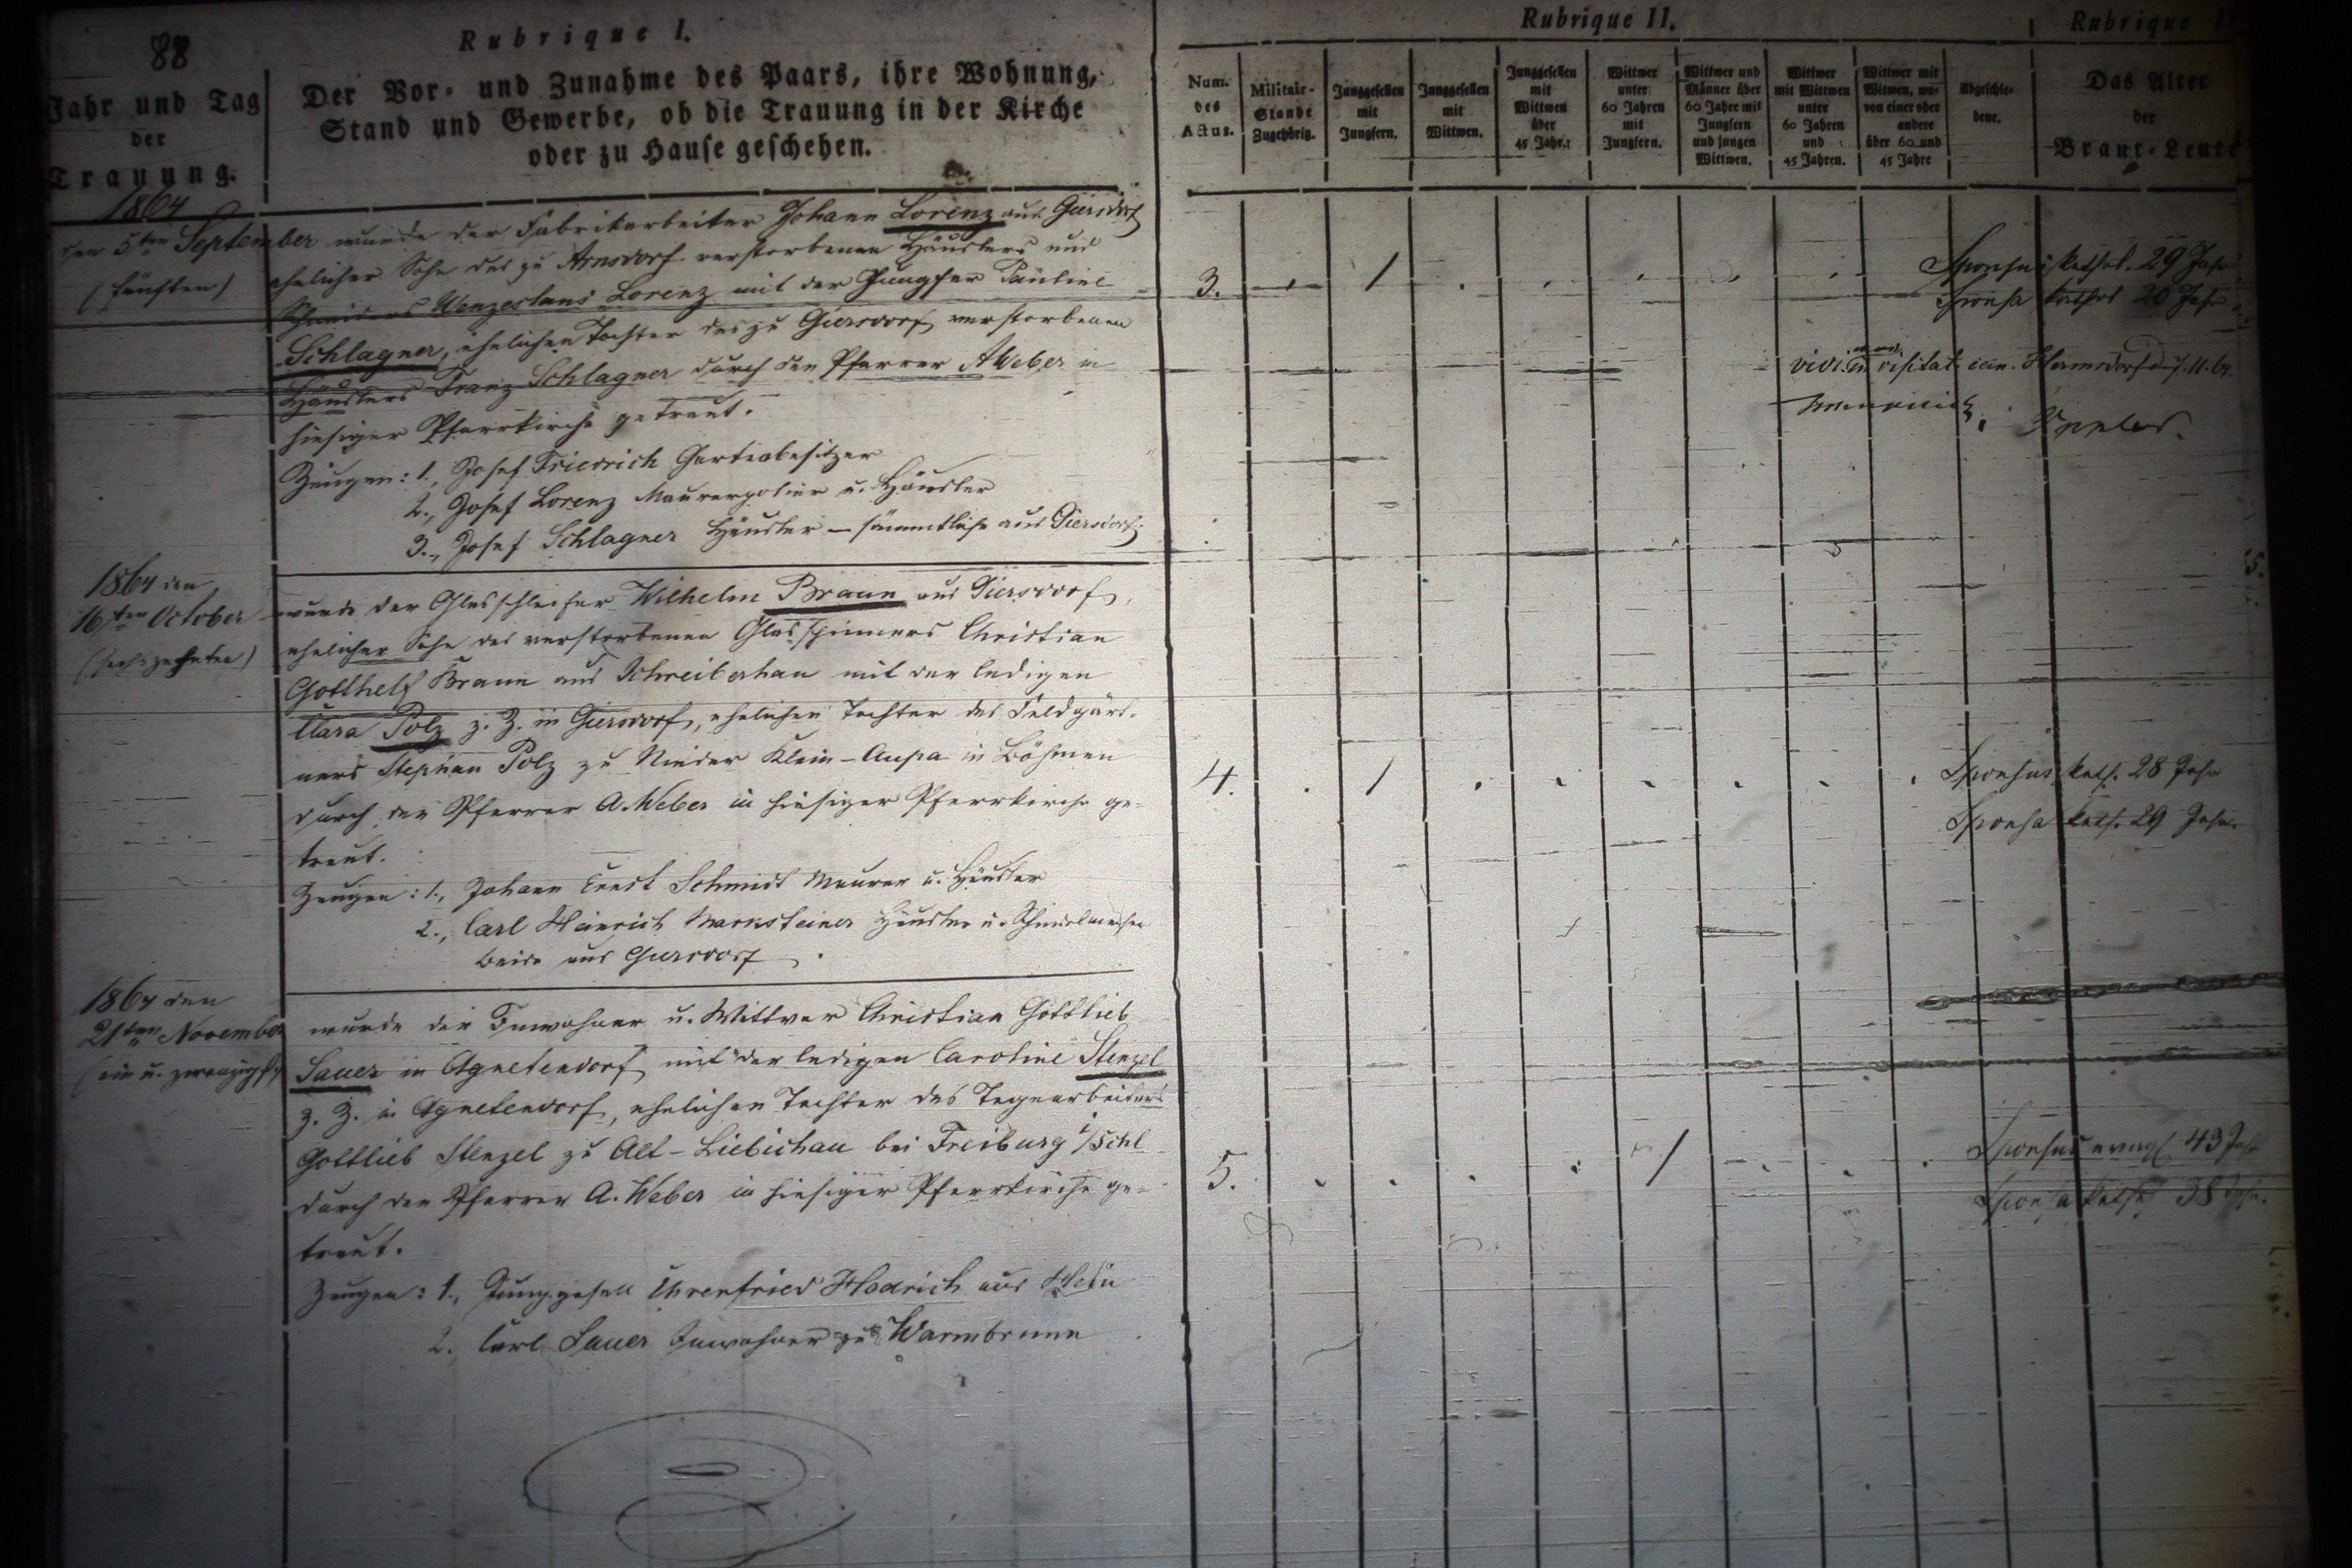 88
Rubrique I.
Jahr und Tag
der
Trauung.
Der Vor- und Zunahme des Paars, ihre Wohnung,
Stand und Gewerbe, ob die Trauung in der Kirche
oder zu Hause geschehen.
Rubrique II.
Num.
des
Actus.
Militair-
Stande
Zugehörig.
Junggesellen
mit
Jungfern.
Junggesellen
mit
Wittwen.
Junggesellen
mit
Wittwen
über
45 Jahr.
Wittwer
unter
60 Jahren
mit
Jungfern.
Wittwer und
Männer über
60 Jahre mit
Jungfern
und jungen
Wittwen.
Wittwer
mit Wittwen
unter
60 Jahren
und
45 Jahren.
Wittwer mit
Witwen, wo-
von einer oder
andere
über 60 und
45 Jahre
Abgeschie-
dene.
Rubrique
Das Alter
der
Braut-Leute
1864
den 5ten September
(fünften)
wurde der Fabrikarbeiter Johann Lorenz aus Giersdorf
ehelicher Sohn des zu Arnsdorf verstorbenen Häuslers und
Schneiders Wenzeslaus Lorenz mit der Jungfer Pauline
Schlagner, ehelichen Tochter des zu Giersdorf verstorbenen
Häuslers Franz Schlagner durch den Pfarrer A Weber in
hiesiger Pfarrkirche getraut.
Zeugen: 1., Josef Friedrich Gartenbesitzer
2., Josef Lorenz Maurerpolier u. Häusler
3., Josef Schlagner Häusler – sämmtlich aus Giersdorf.
3. 1
Sponsus kathol. 29 Jahr
Sponsa kathol 20 Jahr
vidi in visitat. can. Hermsdorf d. 7. 11. 64.
1864 den
16ten October
(sechszehnten)
wurde der Glasschleifer Wilhelm Braun aus Giersdorf,
ehelicher Sohn des verstorbenen Glasspinners Christian
Gotthelf Braun aus Schreiberhau mit der ledigen
Clara Polz z. Z. in Giersdorf, ehelichen Tochter des Feldgärt-
ners Stephan Polz zu Nieder Klein-Aupa in Böhmen
durch den Pfarrer A. Weber in hiesiger Pfarrkirche ge-
traut.
Zeugen: 1., Johann Ernst Schmidt Maurer u. Häusler
2., Carl Heinrich Marksteiner Häusler u. Schindelmacher
beide aus Giersdorf.
4. 1
Sponsus kath. 28 Jahr
Sponsa kath. 29 Jahr
1864 den
21ten November
(ein u. zwanzigst)
wurde der Inwohner u. Wittwer Christian Gottlieb
Sauer in Agnetendorf mit der ledigen Caroline Stenzel
z. Z. in Agnetendorf, ehelichen Tochter des Tagearbeiters
Gottlieb Stenzel zu Alt-Liebichau bei Freiburg i/Schl
durch den Pfarrer A. Weber in hiesiger Pfarrkirche ge-
traut.
Zeugen: 1., Junggesell Ehrenfried Hadrich aus
2. Carl Sauer Inwohner zu Warmbrunn
5. 1
Sponsus evangl 43 Jahr
Sponsa kathol 38 Jahr.